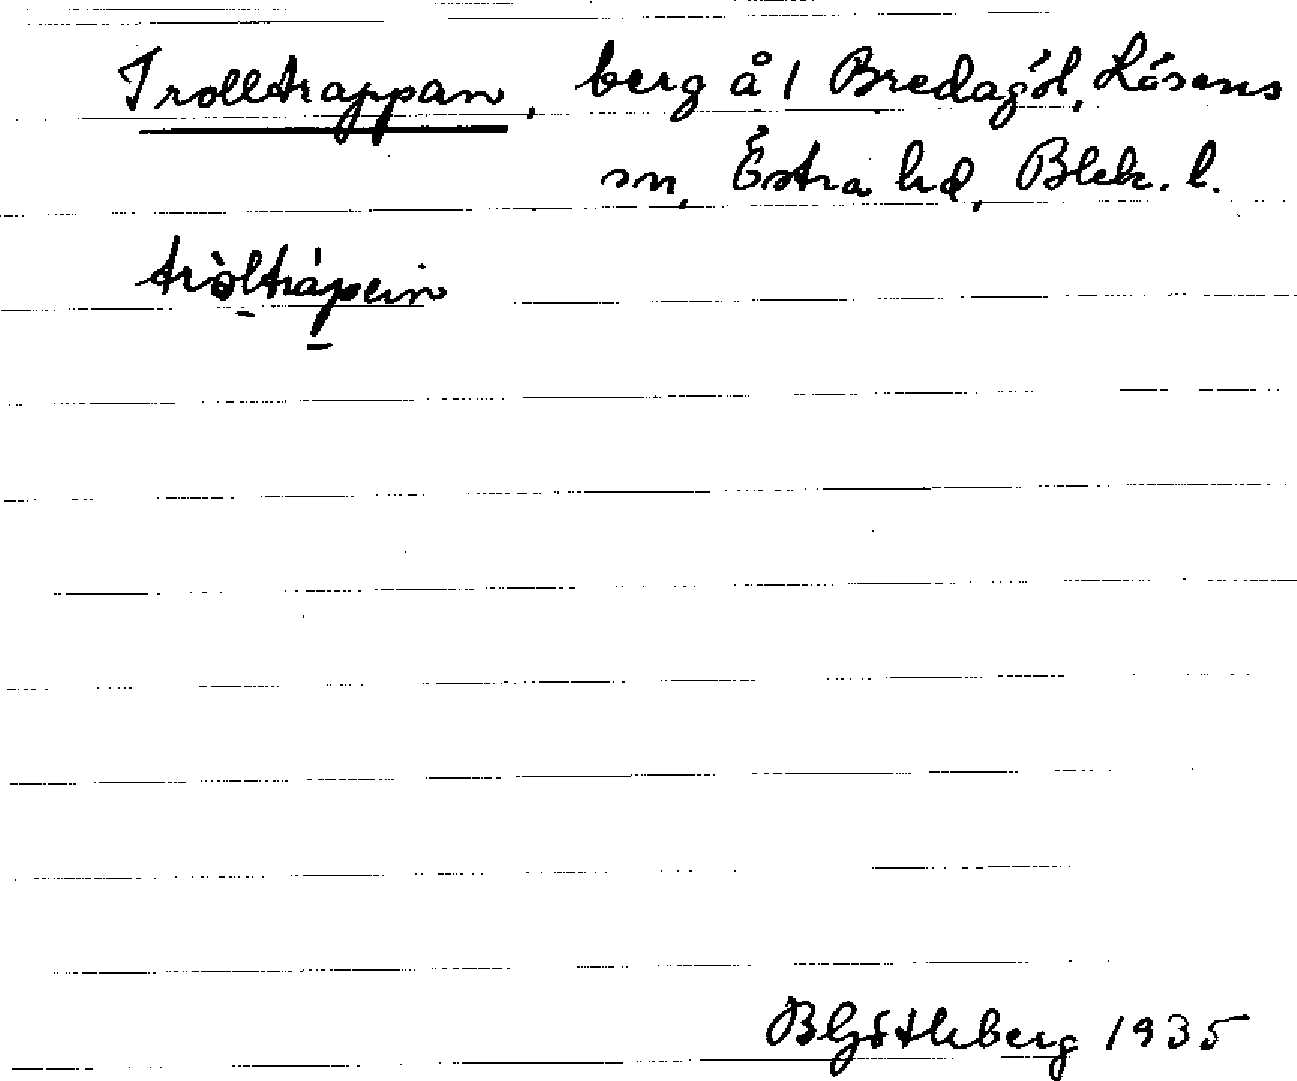 Trolltrappan, berg å 1 Bredagöl, Lösens
sn, Östra hd, Blek. l.
BGöthberg 1935